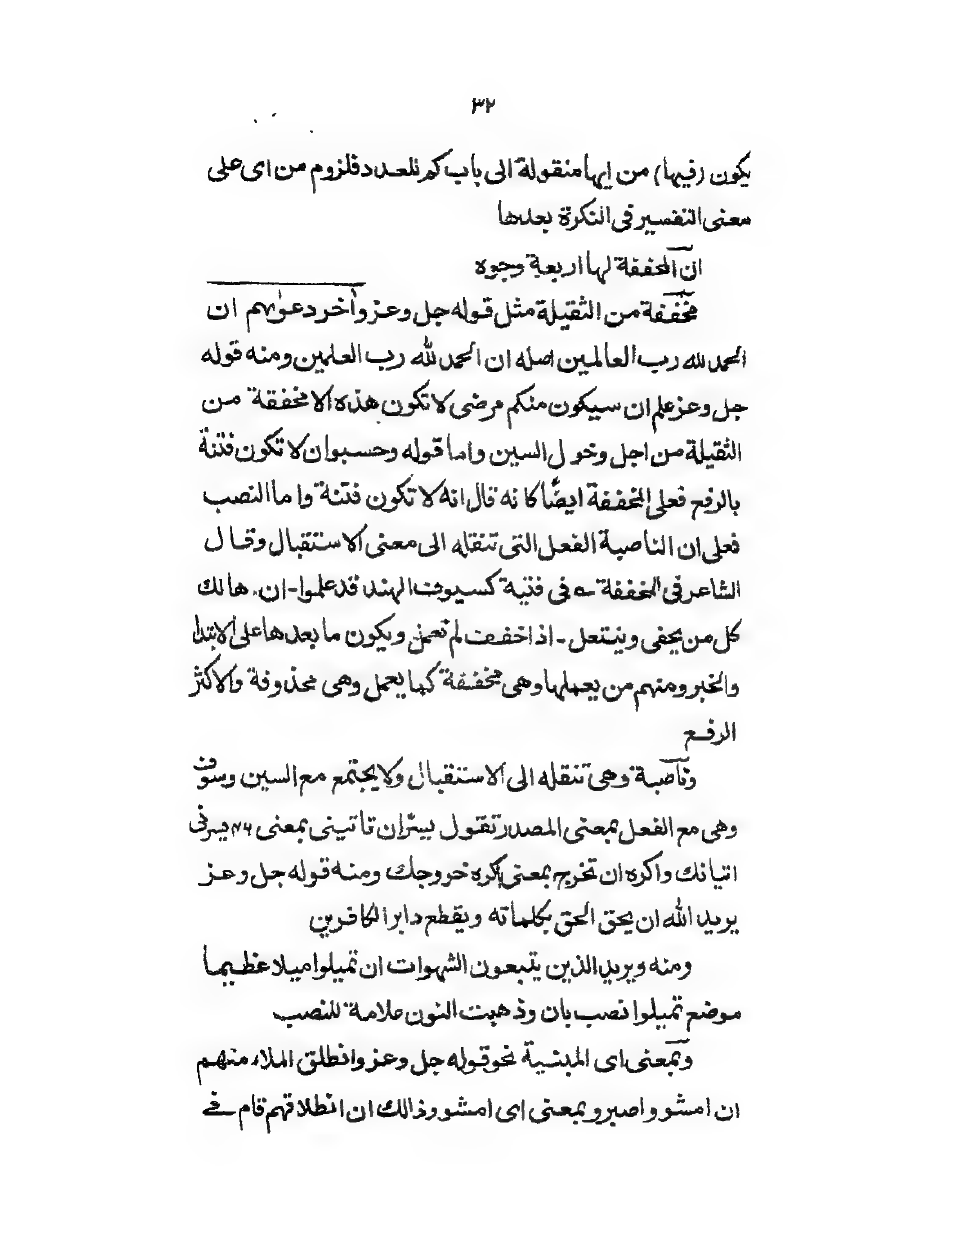 ٣٢
يكون (فيها) من إيها منقولة الى باب كم للعدد فلزوم من اى على
معنى التفسير فى النكرة بعدها
ان المخففة لها اربعة وجوه
مخففة من الثقيلة مثل قوله جل وعز وأخر دعوٰىهم ان
الحمد لله رب العالمين اصله ان الحمد لله رب العلمين ومنه قوله
جل وعز علم ان سيكون منكم مرضى لا تكون هذه الا مخففة من
الثقيلة من اجل وخول السين واما قوله وحسبوا ان لا تكون فتنة
بالرفع فعلى المخففة ايضًا كانه قال انه لا تكون فتنة واما النصب
فعلى ان الناصبة الفعل التى تنقله الى معنى الاستقبال وقال
الشاعر فى المخففة ـه فى فتية كسيوف الهند قد علموا - ان هالك
كل من يحفى وينتعل - اذا خففت لم تعمل ويكون ما بعدها على الابتدا
والخبر ومنهم من يعملها وهى مخففة كما يعمل وهى محذوفة والاكثر
الرفع
وناصبة وهى تنقله الى الاستقبال ولا يجتمع مع السين وسوف
وهى مع الفعل بمعنى المصدر تقول يسرّ ان تاتينى بمعنى يسرنى
اتيانك واكره ان تخرج بمعنى اكره خروجك ومنه قوله جل وعز
يريد الله ان يحق الحق بكلماته ويقطع دابر الكافرين
ومنه ويريد الذين يتبعون الشهوات ان تميلوا ميلا عظيما
موضع تميلوا نصب بان وذهبت النون علامة للنصب
وبمعنى اى المبنية نحو قوله جل وعز وانطلق الملاء منهم
ان امشو واصبرو بمعنى اى امشو وذالك ان انطلاقهم قام فى